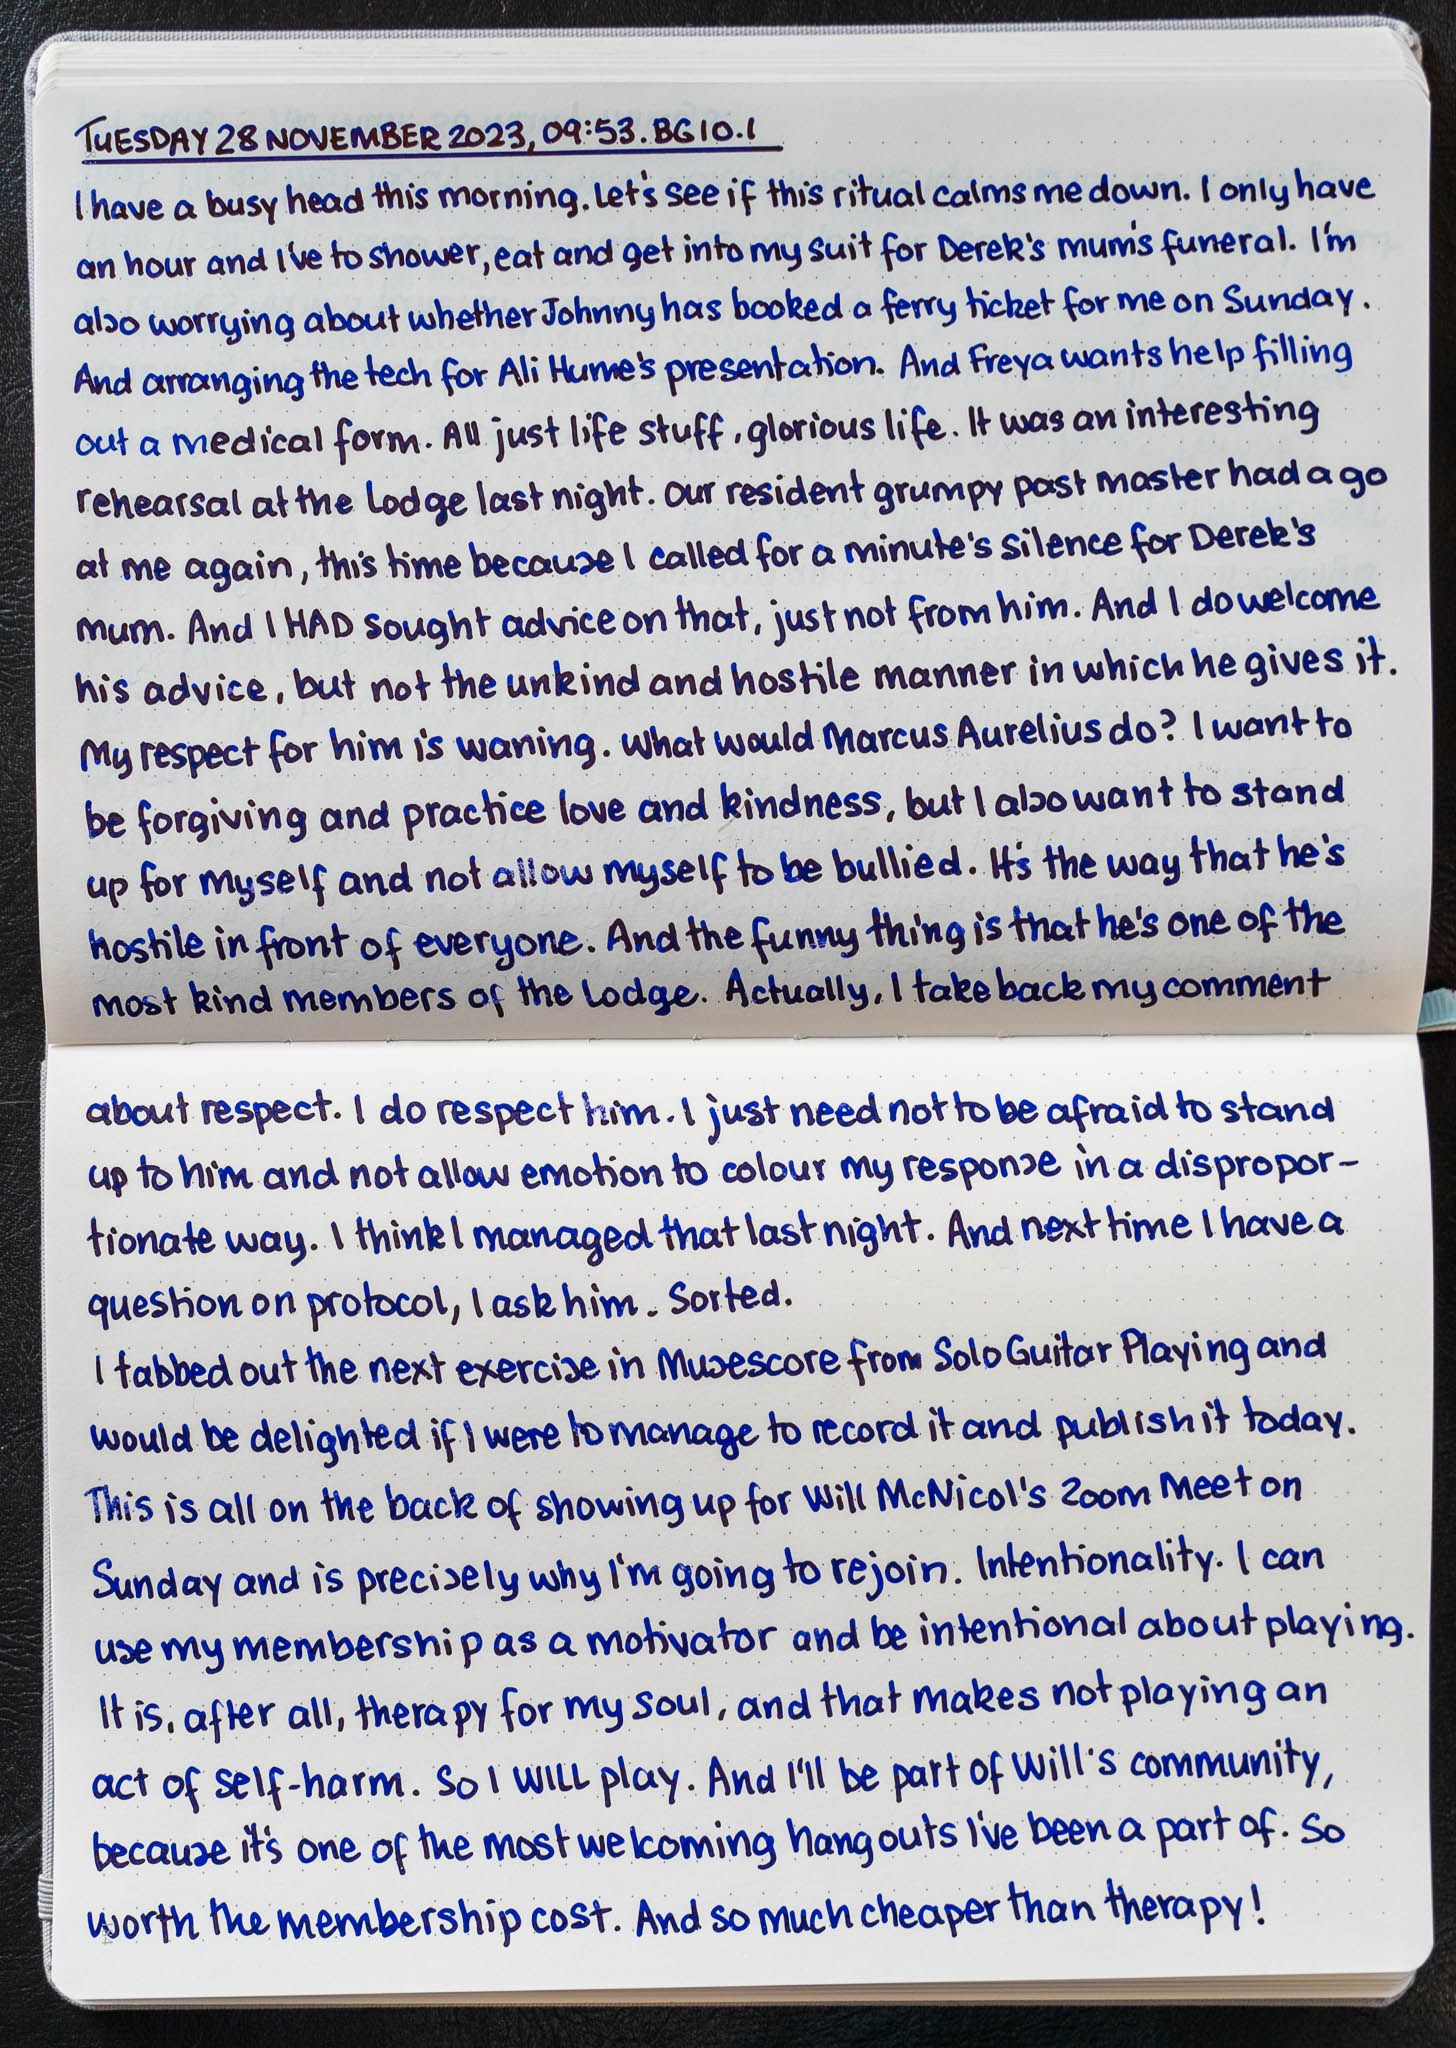 TUESDAY 28 NOVEMBER 2023, 09:53. BG10.1
I have a busy head this morning. Let's see if this ritual calms me down. I only have
an hour and I've to shower, eat and get into my suit for Derek's mum's funeral. I'm
also worrying about whether Johnny has booked a ferry ticket for me on Sunday.
And arranging the tech for Ali Hume's presentation. And Freya wants help filling
out a medical form. All just life stuff, glorious life. It was an interesting
rehearsal at the Lodge last night. Our resident grumpy past master had a go
at me again, this time because I called for a minute's silence for Derek's
mum. And I HAD sought advice on that, just not from him. And I do welcome
his advice, but not the unkind and hostile manner in which he gives it.
My respect for him is waning. What would Marcus Aurelius do? I want to
be forgiving and practice love and kindness, but I also want to stand
up for myself and not allow myself to be bullied. It's the way that he's
hostile in front of everyone. And the funny thing is that he's one of the
most kind members of the Lodge. Actually, I take back my comment
about respect. I do respect him. I just need not to be afraid to stand
up to him and not allow emotion to colour my response in a dispropor-
tionate way. I think I managed that last night. And next time I have a
question on protocol, I ask him. Sorted.
I tabbed out the next exercise in Musescore from Solo Guitar Playing and
would be delighted if I were to manage to record it and publish it today.
This is all on the back of showing up for Will McNicol's Zoom Meet on
Sunday and is precisely why I'm going to rejoin. Intentionality. I can
use my membership as a motivator and be intentional about playing.
It is, after all, therapy for my soul, and that makes not playing an
act of self-harm. So I WILL play. And I'll be part of Will's community,
because it's one of the most welcoming hangouts I've been a part of. So
worth the membership cost. And so much cheaper than therapy!